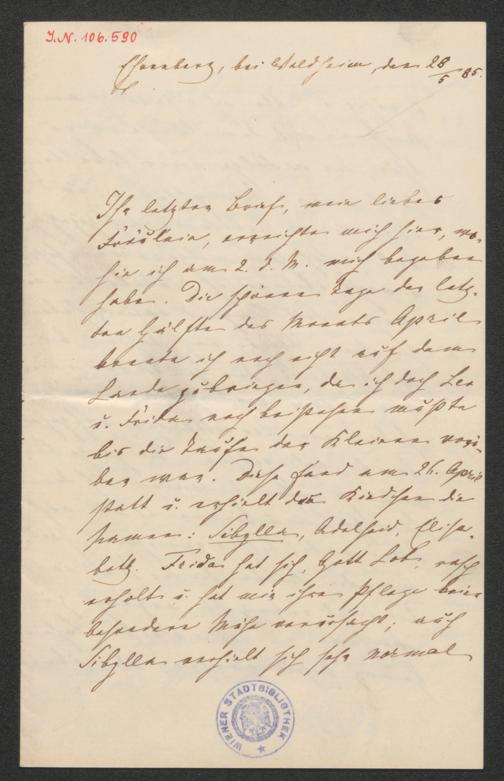 J.N. 106.590
Ehrenberg, bei Waldheim, den 28/5 85.
Ihr letzter Brief, mein liebes
Fräulein, erreichte mich hier, wo-
hin ich am 2. d. M. mich begeben
habe. Die schönen Tage der letz-
ten Hälfte des Monats April
konnte ich noch nicht auf dem
Lande zubringen, da ich doch Leo
u. Frida noch beistehen mußte
bis die Taufe der Kleinen vorü-
ber war. Diese fand am 26. April
statt u. erhielt das Kindchen die
Namen: Sibylla, Adelheid, Elisa-
beth. Frida hat sich, Gott Lob, rasch
erholt u. hat mir ihre Pflege keine
besondere Mühe verursacht; auch
Sibylla verhielt sich sehr normal
WIENER STADTBIBLIOTHEK